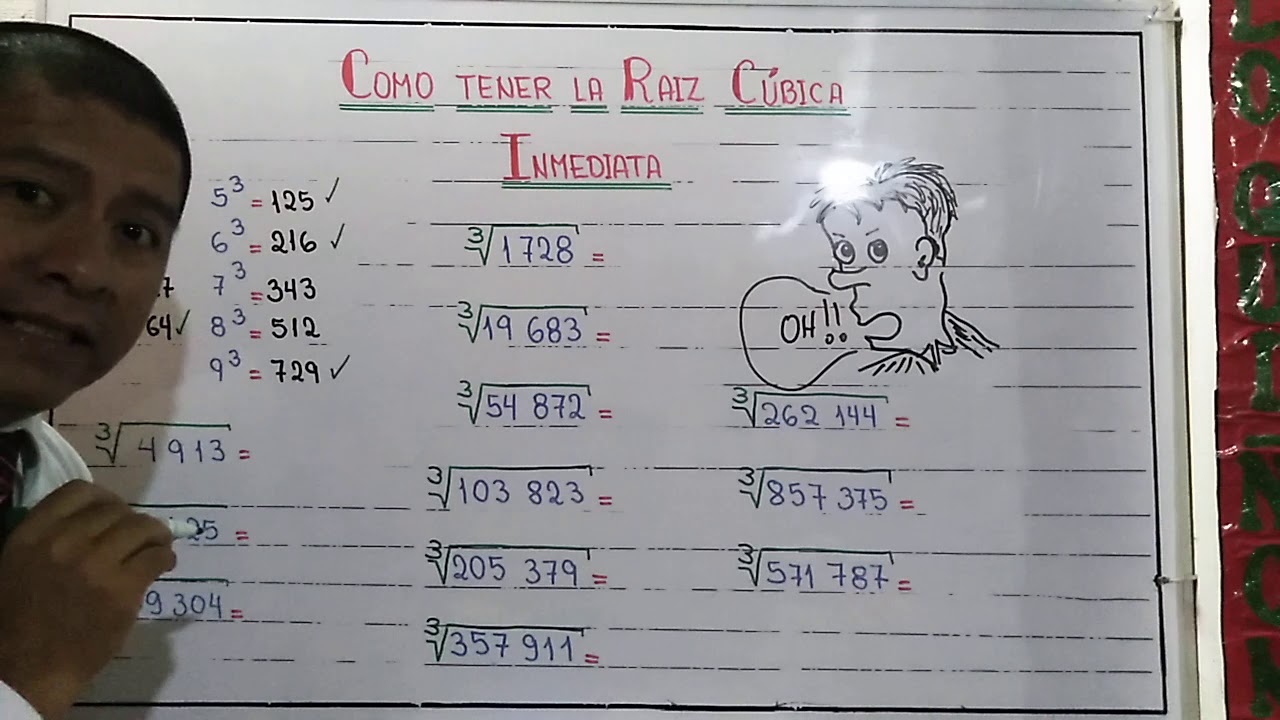 COMO TENER LA RAIZ CÚBICA
INMEDIATA
5³ = 125 ✓
6³ = 216 ✓
7³ = 343
64 ✓ 8³ = 512
9³ = 729 ✓
∛4913 =
25 =
9 304 =
∛1728 =
∛19 683 =
∛54 872 =
∛103 823 =
∛205 379 =
∛357 911 =
OH!!
∛262 144 =
∛857 375 =
∛571 787 =